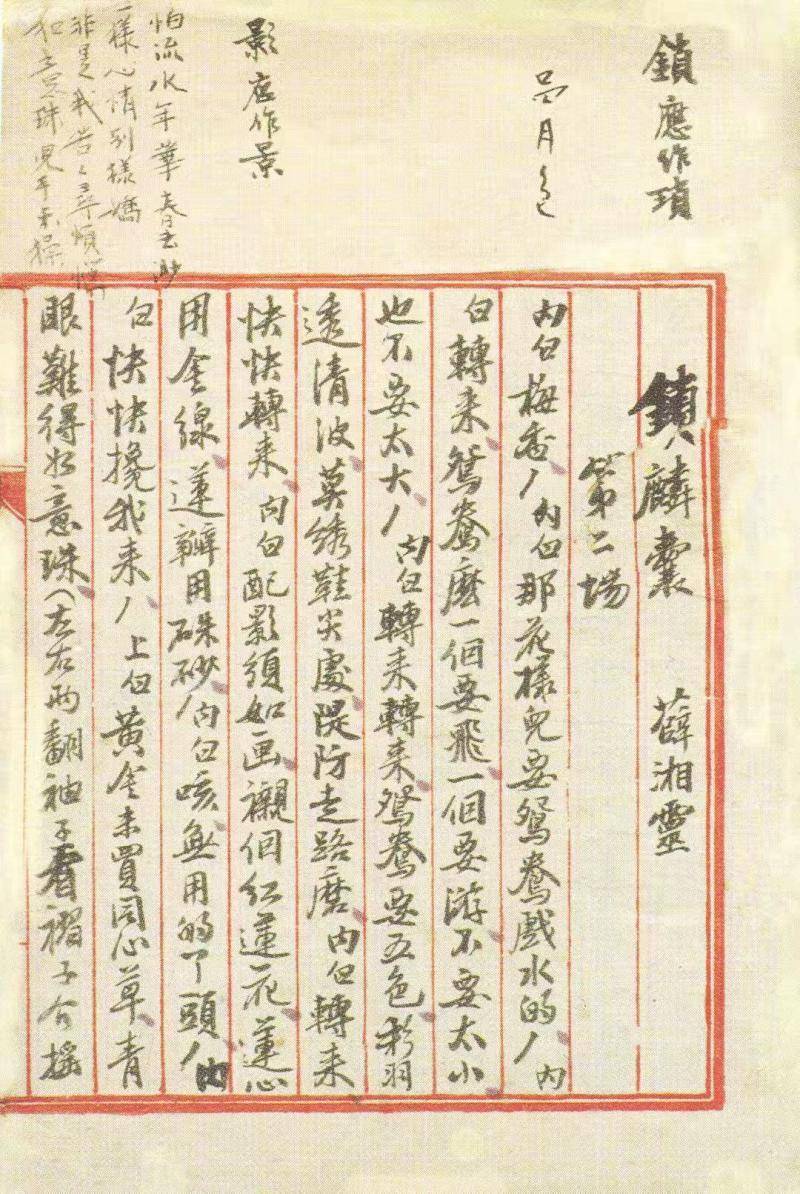 鎖應作瑣
影應作景
怕流水年華春去渺
一樣心情別樣嬌
非是我苦苦尋煩惱
如意珠兒手未操
鎖麟囊　薛湘靈
第二場
內白梅香／內白那花樣兒要鴛鴦戲水的／內
白轉来鴛鴦麼一個要飛一個要游不要太小
也不要太大／內白轉来轉来鴛鴦要五色彩羽
透清波莫綉鞋尖處隄防走路磨內白轉来
快快轉来內白配影須如画襯個红蓮花蓮心
用金線蓮瓣用硃砂／內白咳無用的丫頭／內
白快快攙我来／上白黃金未買同心草青
眼難得如意珠（左右兩翻袖子看褶子介搖